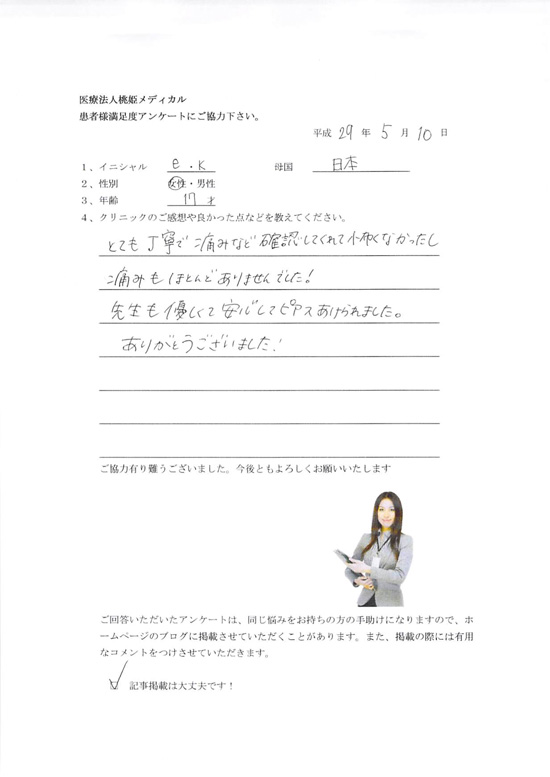 医療法人桃姫メディカル
患者様満足度アンケートにご協力下さい。
平成 29 年 5 月 10 日
1、イニシャル e . K 母国 日本
2、性別 女性・男性
3、年齢 17 才
4、クリニックのご感想や良かった点などを教えてください。
とても丁寧で痛みなど確認してくれて怖くなかったし
痛みもほとんどありませんでした!
先生も優しくて安心してピアスあけられました。
ありがとうございました!
ご協力有り難うございました。今後ともよろしくお願いいたします
ご回答いただいたアンケートは、同じ悩みをお持ちの方の手助けになりますので、ホ
ームページのブログに掲載させていただくことがあります。また、掲載の際には有用
なコメントをつけさせていただきます。
☑ 記事掲載は大丈夫です!